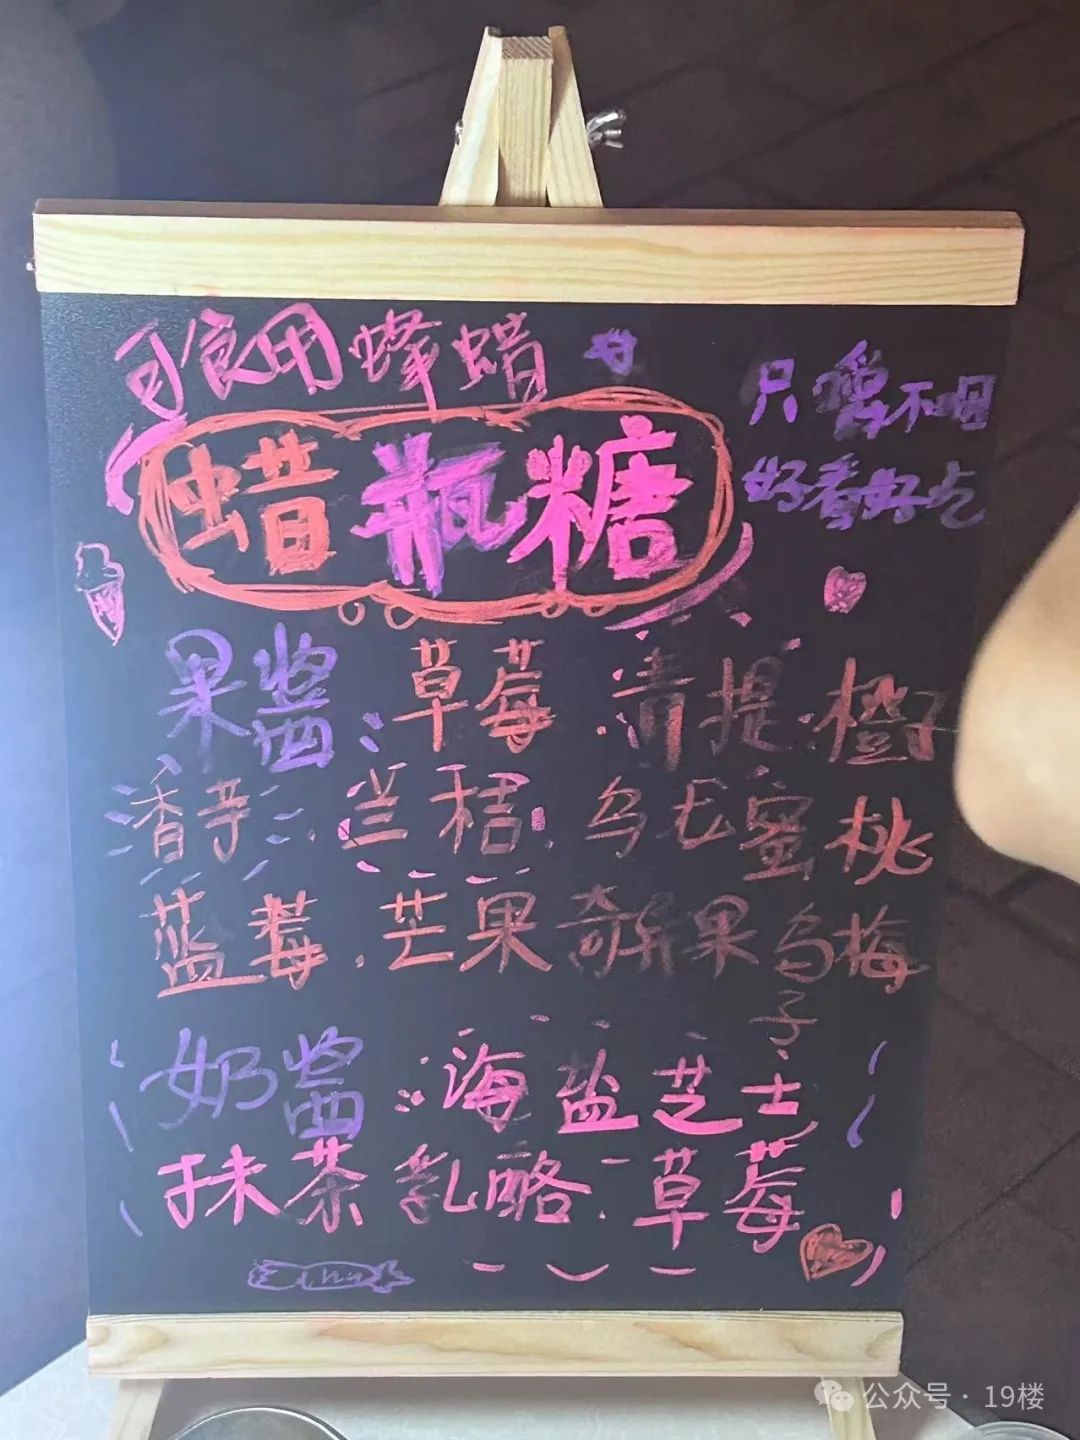 可食用蜂蜡
只嚼不咽
好看好吃
蜡瓶糖
果酱：草莓 青提 橙子
香芋 兰桔 乌龙蜜桃
蓝莓 芒果 奇异果 乌梅子
奶酱：海盐芝士
抹茶 乳酪 草莓
公众号·19楼